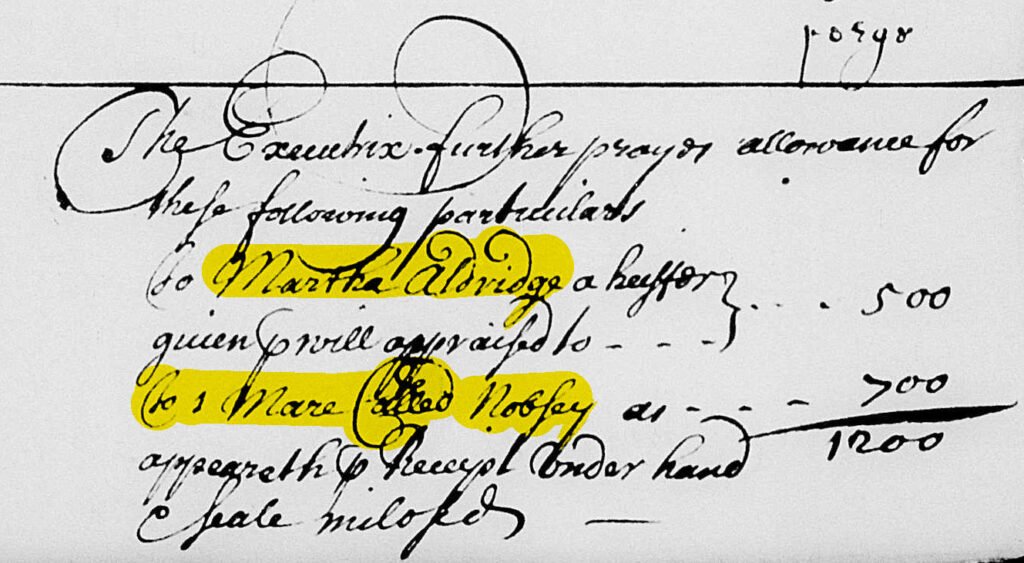 The Executrix further prayes allowance for
these following particulars
to Martha Aldridge a heyffer
given p will appraised to - - - } . . . 500
to 1 Mare Called Nobsey as - - - 700
1200
appeareth p Receipt under hand
& seale